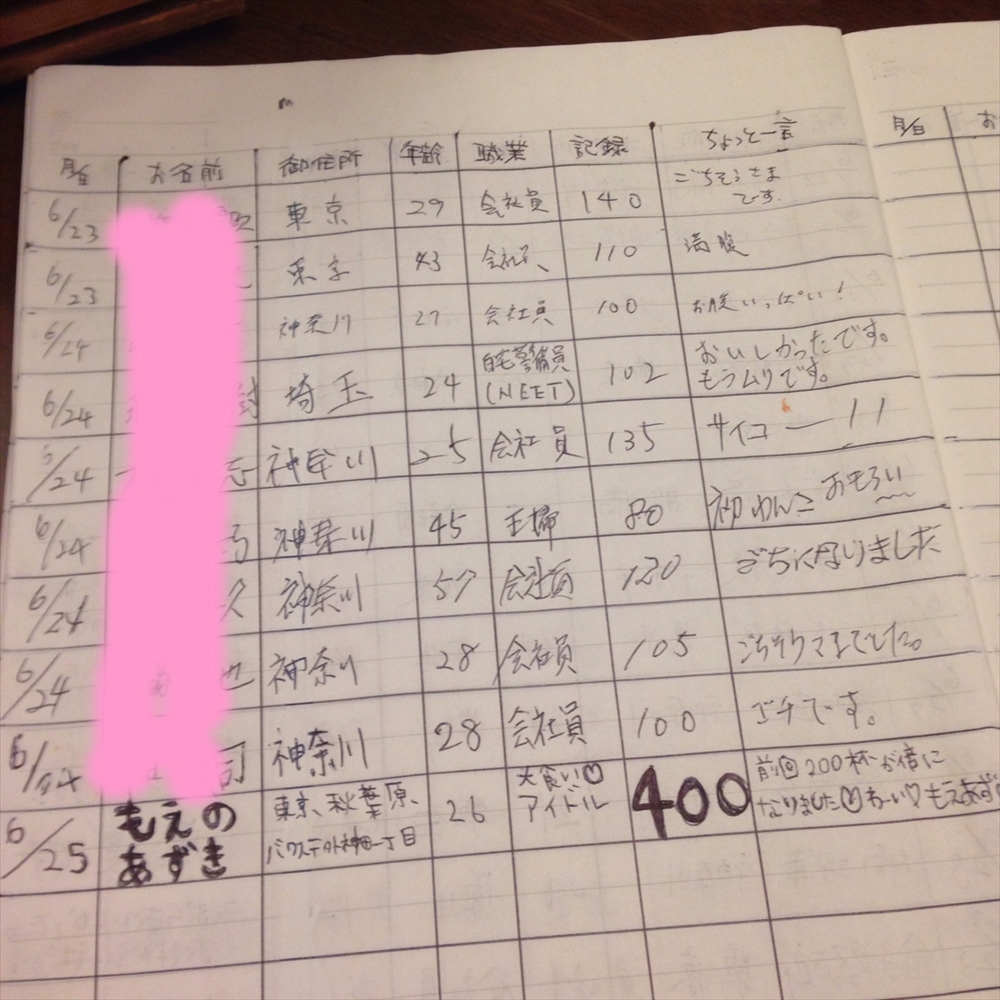 月/日 お名前 御住所 年齢 職業 記録 ちょっと一言
月/日 お
6/23 東京 29 会社員 140 ごちそうさま
です.
6/23 東京 43 会社員 110 満腹
6/24 神奈川 27 会社員 100 お腹いっぱい!
6/24 埼玉 24 自宅警備員 102 おいしかったです。
(NEET) もうムリです。
6/24 神奈川 25 会社員 135 サイコー!!
6/24 神奈川 45 主婦 80 初わんこ おもろい
6/24 久 神奈川 57 会社員 120 ごちになりました
6/24 也 神奈川 28 会社員 105
6/24 司 神奈川 28 会社員 100 ゴチです。
6/25 もえの 東京、秋葉原、 26 大食い♡ 400 前回200杯が倍に
あずき アイドル なりました わーい♡もえあず